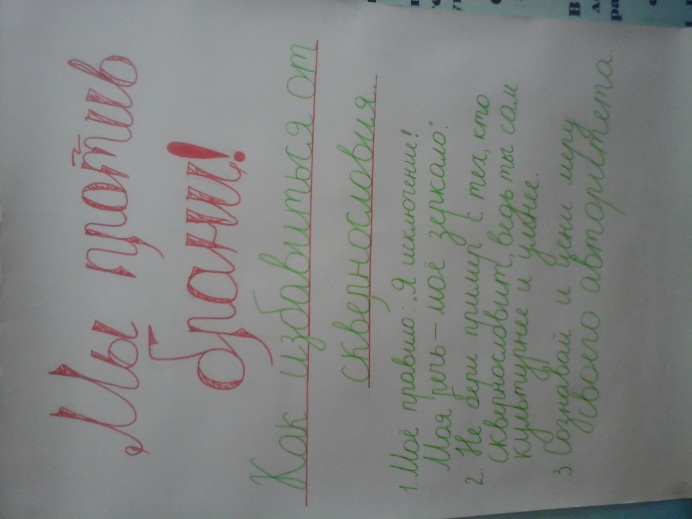 Мы против
брани!
Как избавиться от
сквернословия.
1. Моё правило: „Я исключение!
Моя речь – моё зеркало".
2. Не бери пример с тех, кто
сквернословит, ведь ты сам
культурнее и умнее.
3 Сознавай и цени меру
своего авторитета